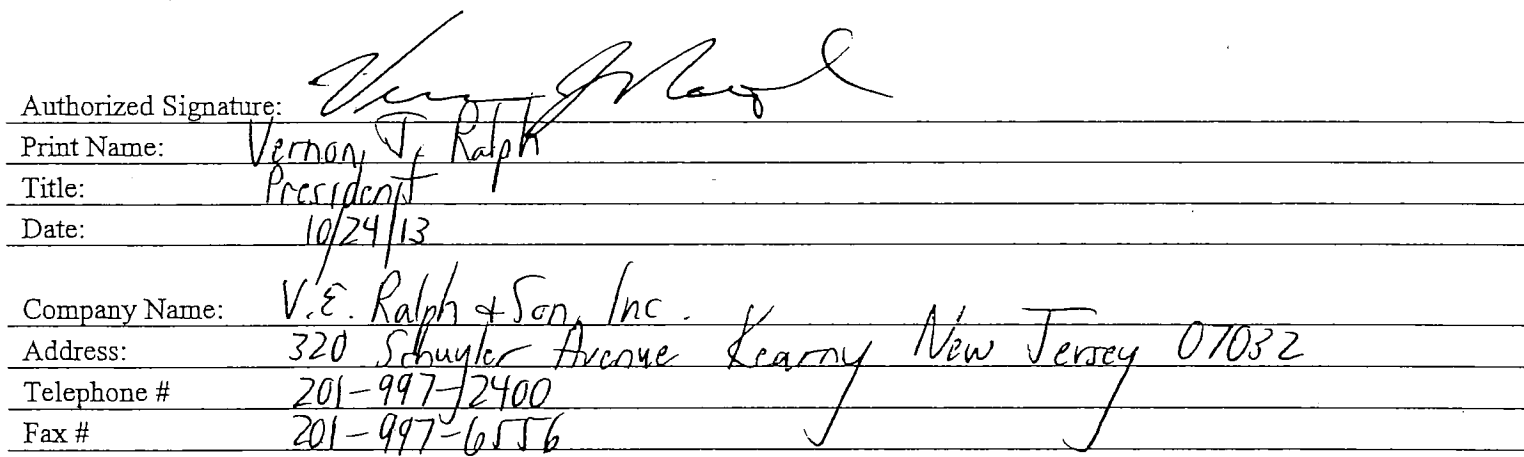 Authorized Signature: Vernon J Ralph
Print Name: Vernon J. Ralph
Title: President
Date: 10/24/13
Company Name: V.E. Ralph & Son, Inc.
Address: 320 Schuyler Avenue Kearny New Jersey 07032
Telephone # 201-997-2400
Fax # 201-997-6556